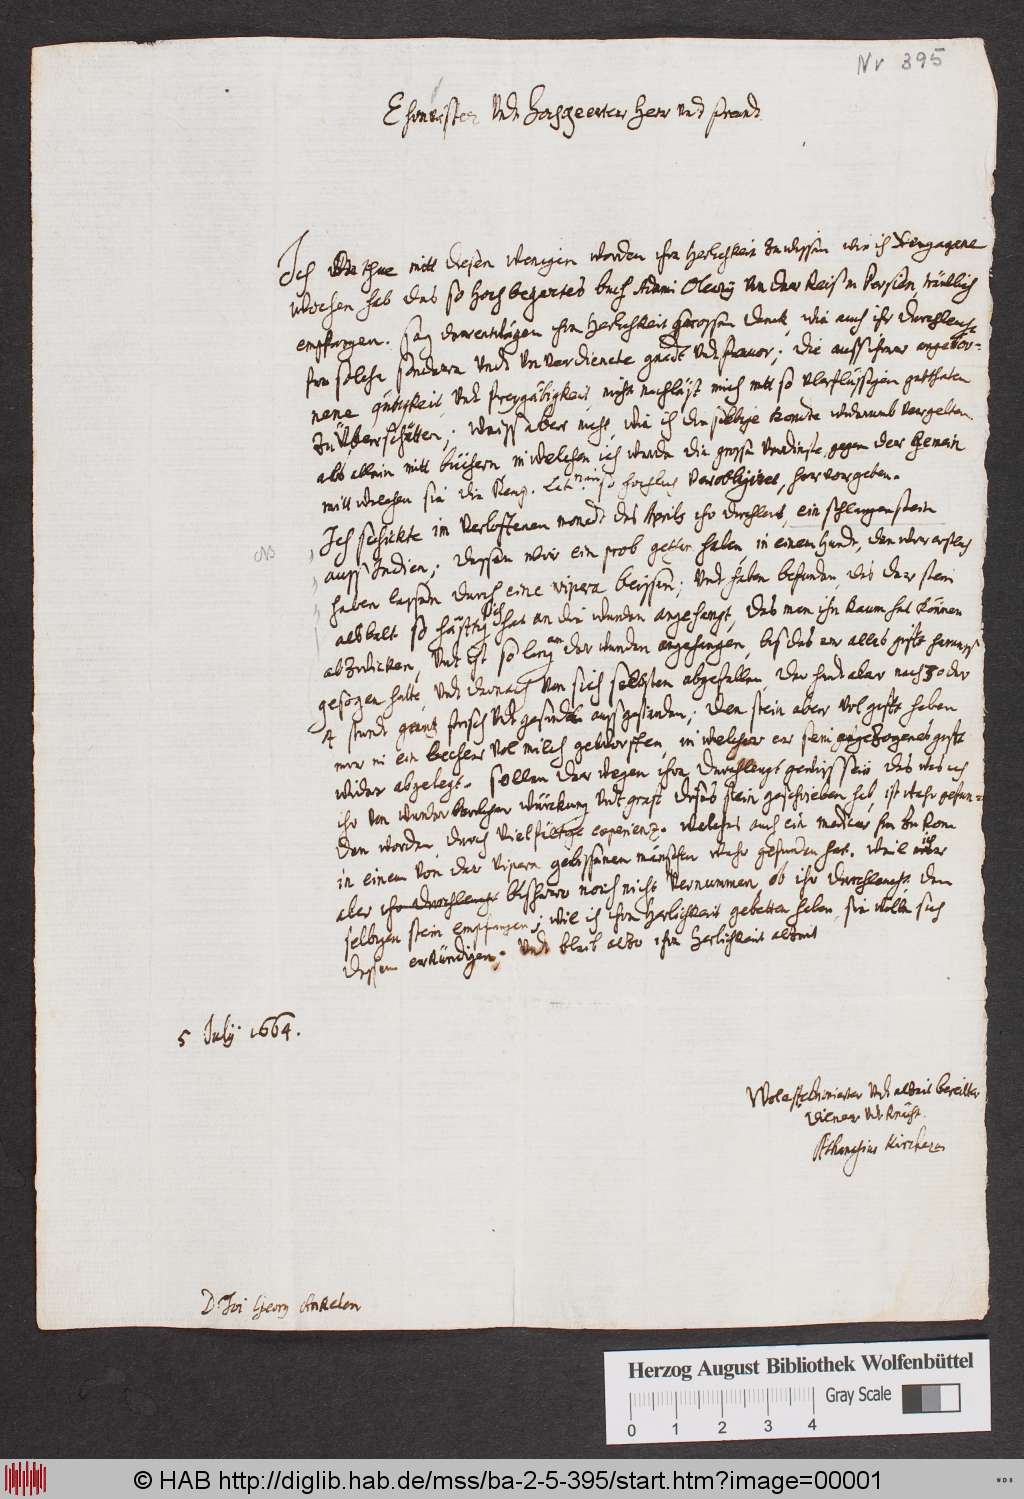 Nr 395
Ehrnvister Undt Hochgeerter Herr und freundt
Ich thue mitt diesen wenigen worden ihre Herlichkeit zu wissen wie ich vergagene
wochen hab das so hoch begertes buch Adami Olearij Von der Reiß in Persien, treülich
empfangen. sag derentwegen ihre Herlichkeit grossen danck, wie auch ihr durchleucht
fur solche sondern Undt Unverdiente gnadt Undt favor; die auss ihrer angebor=
nene gütigkeit, Undt freygäbigkeit, nicht nachläst mich mitt so Uberflüssigen gutthaten
zu Überschütten; weiss aber nicht wie ich dieselbige konte widerumb vergelten
als allein mitt büchern in welchen ich werde die grosse Verdinste, gegen der gemein
mitt welchen sie die so hochlich verobligiret, hervorgeben.
Ich schickte im verloffenen monadt des Aprils ihr durchleucht, ein schlangenstein
NB
auss Indien; dessen wir ein prob gethan haben, in einem hundt, den wir erstlich
haben lassen durch eine vipera beissen; Undt haben befunden, das der stein
alsbalt so häfftig sich hat an die wunden angehangt, das man ihn kaum hat können
abzwicken, Undt ist so lang an der wunden angehangen, bis das er alles gifft herauss
gesogen hatte, Undt darnach von sich selbsten abgefallen der hundt aber nach 3 oder
4 stundt gantz frisch Undt gesundt aufgestanden; den stein aber vol gifft haben
wir in ein becher vol milch geworffen, in welcher er sein angezogenes gifft
wider abgelegt. sollen derwegen ihre durchleucht gewiss sein das was ich
ihr von wunderbarlicher würckung Undt craft dises stein geschrieben hab, ist wahr gefun=
den worden durch vielfältige experienz. welches auch ein medicus hie zu Rom
in einem von der vipera gebissenen menschen wahr gefunden hat. weil ich
aber ihr durchleucht bishero noch nicht vernummen, ob ihr durchleucht den
selbigen stein empfangen; wil ich ihre Herlichkeit gebetten haben, sie wölle sich
dessen erkündigen; Undt bleib also ihre Herlichkeit alzeit
5 Julij 1664.
Undt alzeit bereitter
diener Undt knächt.
Athanasius Kircherus
D. Joi Georg Anckelen
Herzog August Bibliothek Wolfenbüttel
Gray Scale
0 1 2 3 4
© HAB http://diglib.hab.de/mss/ba-2-5-395/start.htm?image=00001